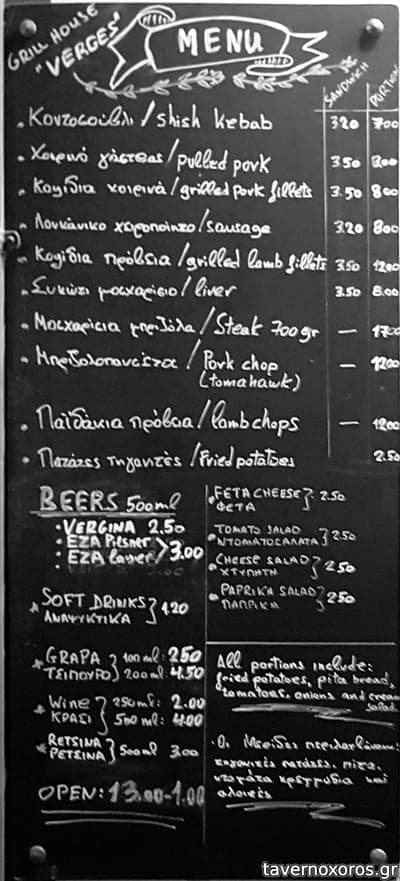 GRILL HOUSE
"VERGES"
MENU
SANDWICH PORTION
Κοντοσούβλι / shish kebab 3.20 7.00
Χοιρινό / pulled pork 3.50 8.00
Κοψίδια χοιρινά / grilled pork fillets 3.50 8.00
Λουκάνικο χειροποίητο / sausage 3.20 8.00
Κοψίδια πρόβεια / grilled lamb fillets 3.50 12.00
Συκώτι μοσχαρίσιο / liver 3.50 8.00
Μοσχαρίσια μπριζόλα / Steak 700gr — 17.00
Μπριζολοπανσέτα / Pork chop — 12.00
(tomahawk)
Παϊδάκια πρόβεια / lambchops — 12.00
Πατάτες τηγανιτές / Fried potatoes 2.50
BEERS 500ml
VERGINA 2.50
EZA Pilsner
EZA Lager 3.00
SOFT DRINKS
ΑΝΑΨΥΚΤΙΚΑ 1.20
GRAPA 100ml: 2.50
ΤΣΙΠΟΥΡΟ 200ml: 4.50
Wine 250ml: 2.00
ΚΡΑΣΙ 500ml: 4.00
RETSINA
ΡΕΤΣΙΝΑ 500ml 3.00
OPEN: 13.00-1.00
FETA CHEESE 2.50
ΦΕΤΑ
TOMATO SALAD
ΝΤΟΜΑΤΟΣΑΛΑΤΑ 2.50
CHEESE SALAD
ΧΤΥΠΗΤΗ 2.50
PAPRIKA SALAD
ΠΑΠΡΙΚΑ 2.50
All portions include:
fried potatoes, pita bread,
tomatoes, onions and cream
salad.
Οι Μερίδες περιλαμβάνουν:
τηγανιτές πατάτες, πίτα,
ντομάτα κρεμμύδια και
αλοιφές
tavernoxoros.gr